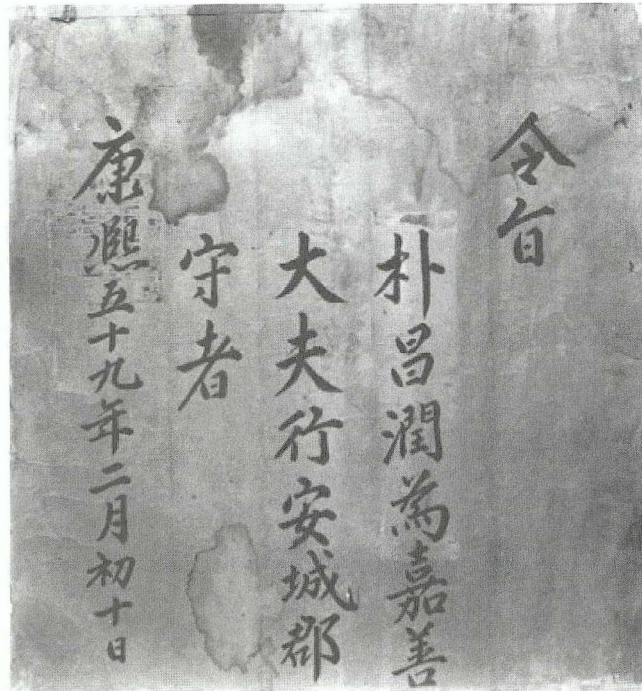 令旨
朴昌潤為嘉善
大夫行安城郡
守者
康熙五十九年二月初十日